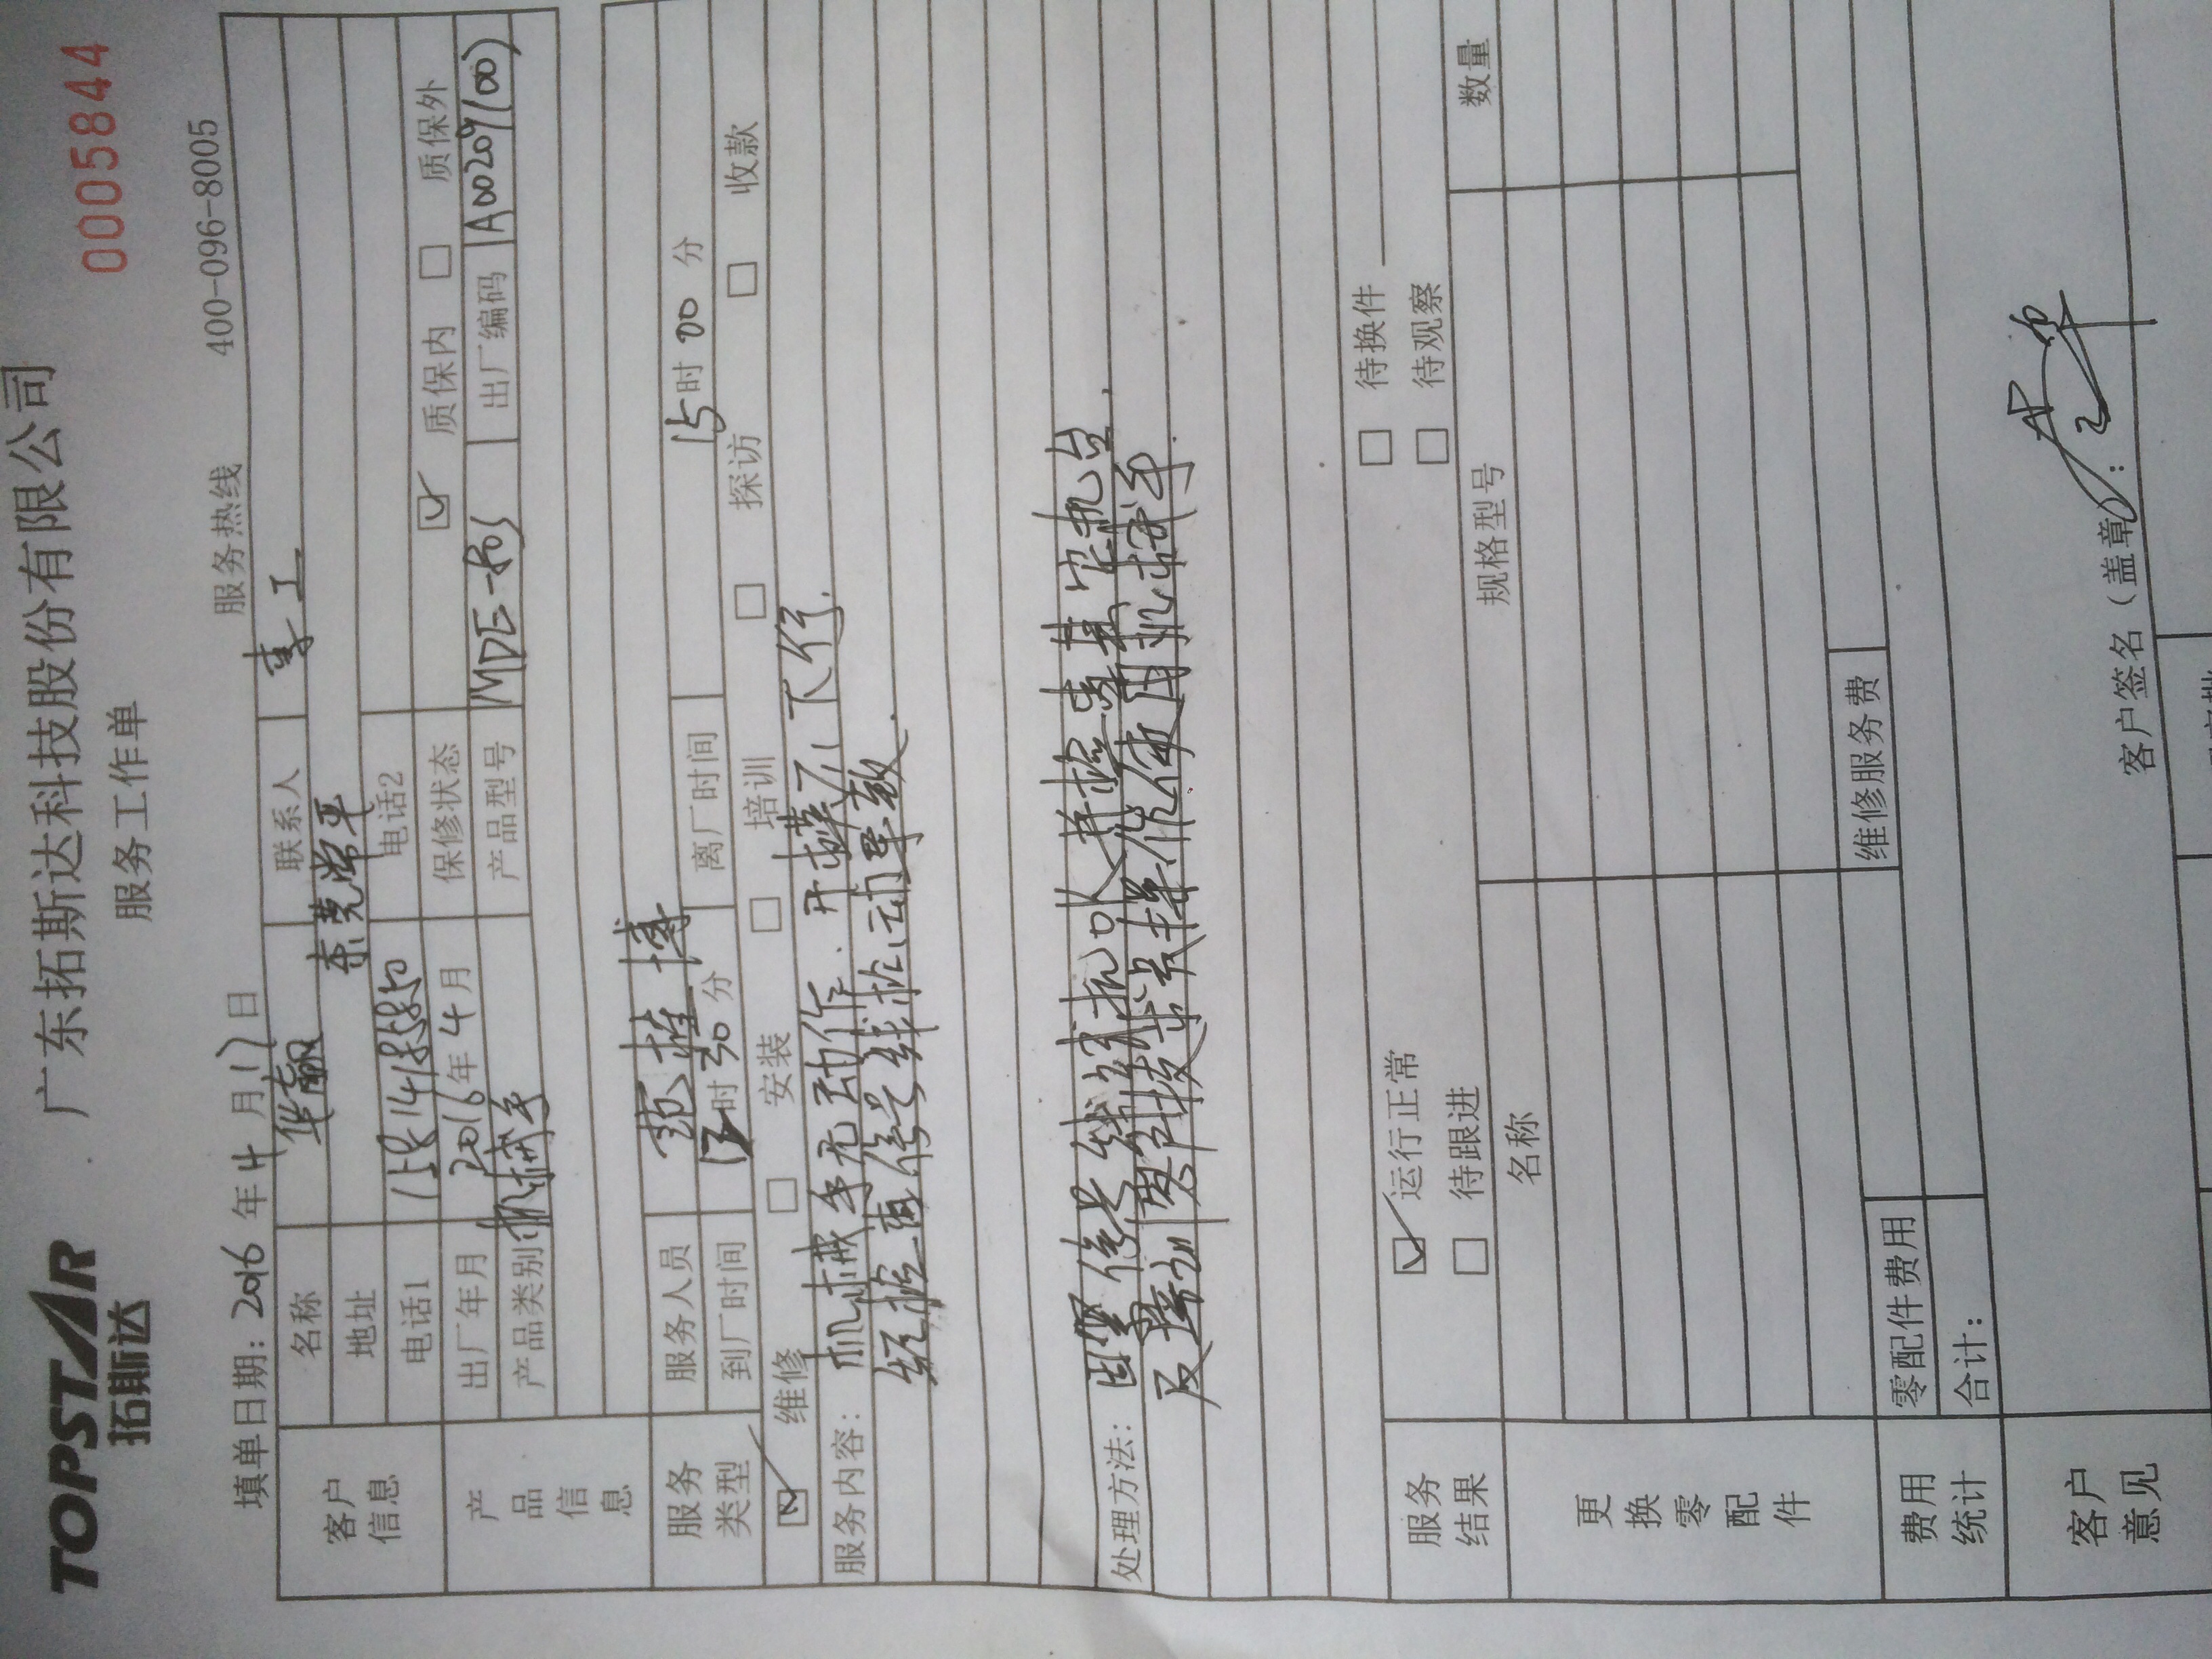 TOPSTAR
拓斯达
广东拓斯达科技股份有限公司
0005844
服务工作单
填单日期: 2016 年 4 月 17 日
服务热线 400-096-8005
客户信息
名称 华翮 联系人 李工
地址 东莞常平
电话1 电话2
产品信息
出厂年月 2016年 4月 保修状态 质保内 质保外
产品类别 机械手 产品型号 出厂编码
服务类型
服务人员 范雄博
到厂时间 时 30 分 离厂时间 15时 00 分
维修 安装 培训 探访 收款
服务内容: 机械手无动作. 开模不下行.
经检查信号线松动导致.
处理方法: 信号线 并检查其它机台.
及培训客户技术员操作使用机械手.
服务结果
运行正常 待换件
待跟进 待观察
更换零配件
名称 规格型号 数量
费用统计
零配件费用 维修服务费
合计:
客户意见
客户签名（盖章）: